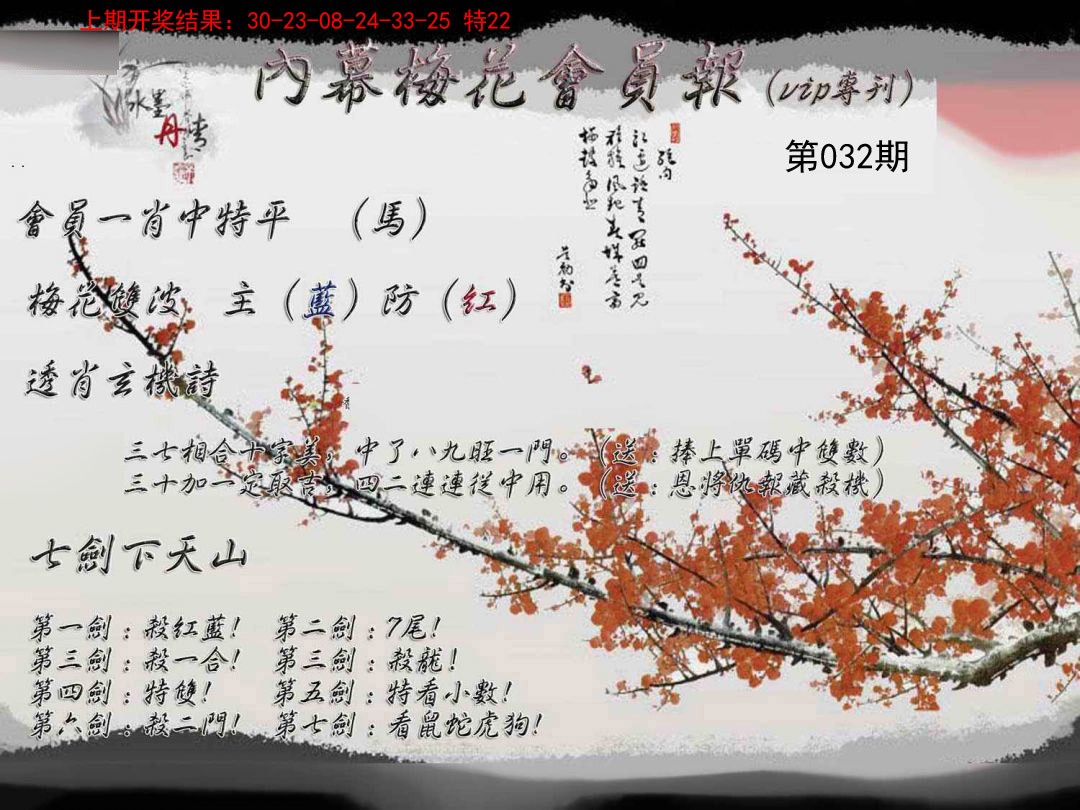 上期开奖结果：30-23-08-24-33-25 特22
內幕梅花會員報（vip專刊）
水墨
丹情
第032期
會員一肖中特平 （馬）
梅花雙波 主（藍）防（紅）
透肖玄機詩
三七相合十字美，中了八九旺一門。（送：捧上單碼中雙數）
三十加一定取吉，四二連連從中用。（送：恩將仇報藏殺機）
七劍下天山
第一劍：殺紅藍！ 第二劍：7尾！
第三劍：殺一合！ 第三劍：殺龍！
第四劍：特雙！ 第五劍：特看小數！
第六劍：殺二門！ 第七劍：看鼠蛇虎狗！